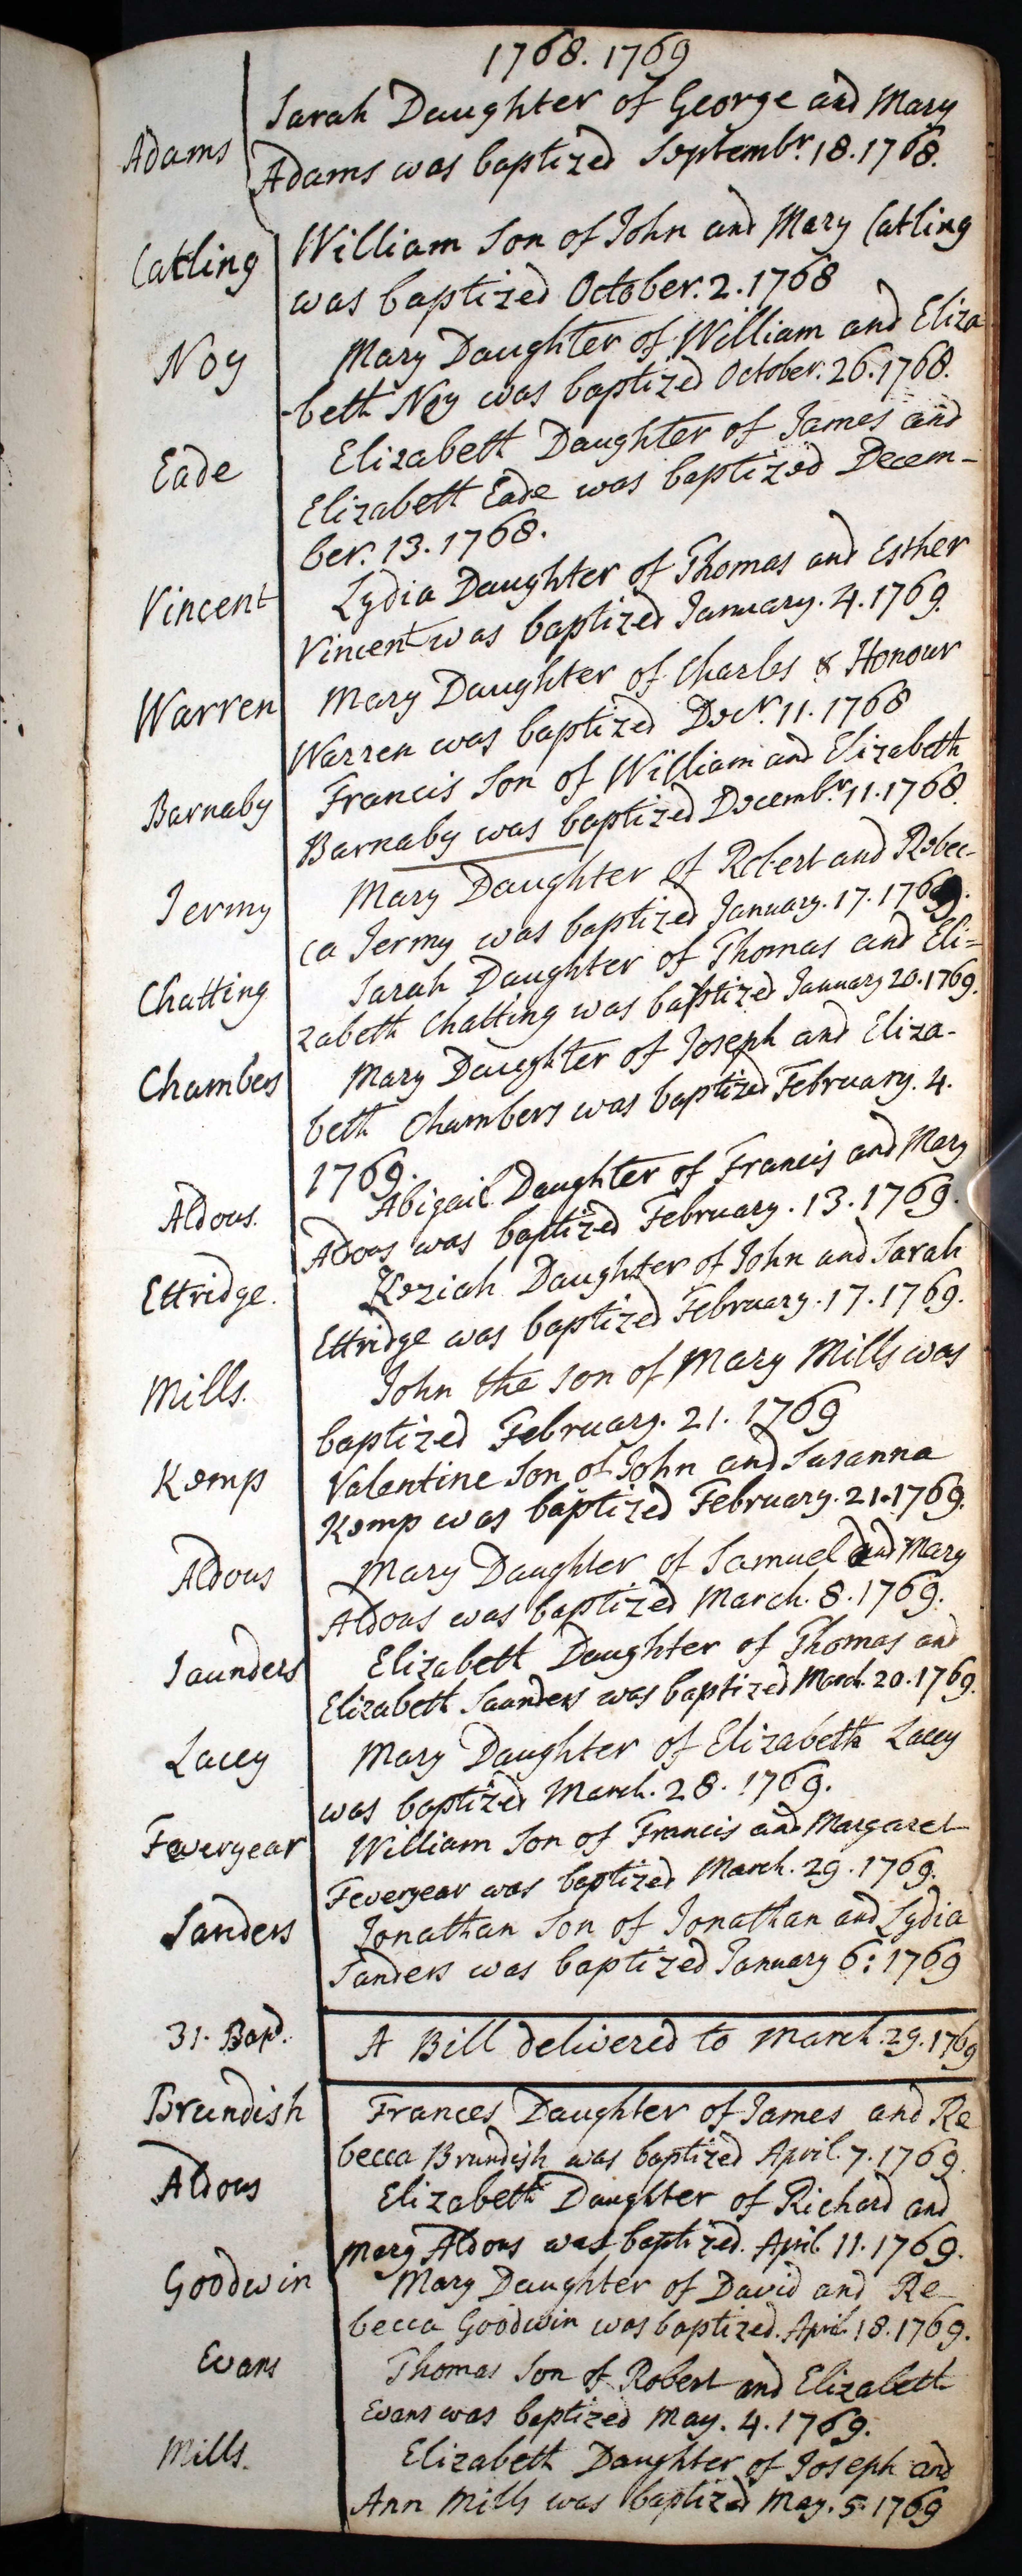 1768. 1769
Adams
Sarah Daughter of George and Mary
Adams was baptized Septembr. 18. 1768.
Catling
William Son of John and Mary Catling
was baptized October. 2. 1768
Noy
Mary Daughter of William and Eliza
-beth Noy was baptized October. 26. 1768.
Eade
Elizabeth Daughter of James and
Elizabeth Eade was baptized Decem-
ber. 13. 1768.
Vincent
Lydia Daughter of Thomas and Esther
Vincent was baptized January. 4. 1769.
Warren
Mary Daughter of Charles & Honour
Warren was baptized Decr. 11. 1768
Barnaby
Francis Son of William and Elizabeth
Barnaby was baptized Decembr. 11. 1768.
Jermy
Mary Daughter of Robert and Rebec-
ca Jermy was baptized January. 17. 1769.
Chatting
Sarah Daughter of Thomas and Eli=
zabeth Chatting was baptized January 20. 1769.
Chambers
Mary Daughter of Joseph and Eliza-
beth Chambers was baptized February. 4.
1769.
Aldous.
Abigail Daughter of Francis and Mary
Aldous was baptized February. 13. 1769.
Ettridge.
Keziah Daughter of John and Sarah
Ettridge was baptized February. 17. 1769.
Mills.
John the son of Mary Mills was
baptized February. 21. 1769
Kemp
Valentine Son of John and Susanna
Kemp was baptized February. 21. 1769.
Aldous
Mary Daughter of Samuel and Mary
Aldous was baptized March. 8. 1769.
Saunders
Elizabeth Daughter of Thomas and
Elizabeth Saunders was baptized March. 20. 1769.
Lacey
Mary Daughter of Elizabeth Lacey
was baptized March. 28. 1769.
Feveryear
William Son of Francis and Margaret
Feveryear was baptized March. 29. 1769.
Sanders
Jonathan Son of Jonathan and Lydia
Sanders was baptized January 6: 1769
31. Bapd.
A Bill delivered to March. 29. 1769
Brundish
Frances Daughter of James and Re
becca Brundish was baptized April. 7. 1769.
Aldous
Elizabeth Daughter of Richard and
Mary Aldous was baptized. April 11. 1769.
Goodwin
Mary Daughter of David and Re-
becca Goodwin was baptized. April 18. 1769.
Evans
Thomas Son of Robert and Elizabeth
Evans was baptized May. 4. 1769.
Mills.
Elizabeth Daughter of Joseph and
Ann Mills was baptized May. 5. 1769